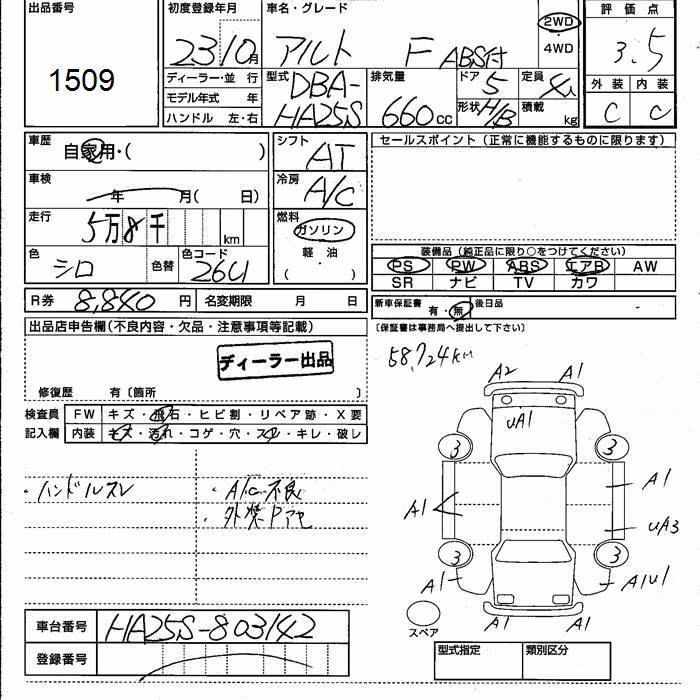 出品番号
1509
初度登録年月
23/10月
車名・グレード
アルト F ABS付
2WD
・
4WD
評価点
3.5
外装 内装
C C
ディーラー・並 行
モデル年式 年
ハンドル 左・右
型式
DBA-
HA25S
排気量
660cc
ドア
5
形状
H/B
定員
4人
積載
kg
車歴
自家用・( )
車検
年 月( 日)
走行
5万8千
km
色
シロ
色替
色コード
26U
シフト
AT
冷房
A/C
燃料
ガソリン
軽・油
( )
セールスポイント(正常に機能するものに限ります)
装備品(純正品に限り○をつけてください)
PS PW ABS エアB AW
SR ナビ TV カワ
R券 8,840 円 名変期限 月 日
新車保証書 有・無 後日品 -
〔保証書は事務局へ提出して下さい〕
出品店申告欄(不良内容・欠品・注意事項等記載)
ディーラー出品
修復歴 有〔箇所 〕
58,724km
検査員
記入欄
FW キズ・飛石・ヒビ割・リペア跡・X要
内装 キズ・汚れ・コゲ・穴・スレ・キレ・破レ
・ハンドルスレ
・A/C不良
・外装Pアセ
A2 A1
uA1
3 3
A1
A1
uA3
3 3
A1 A1U1
A1 A1
スペア
車台番号 HA25S-803142
登録番号
型式指定 類別区分